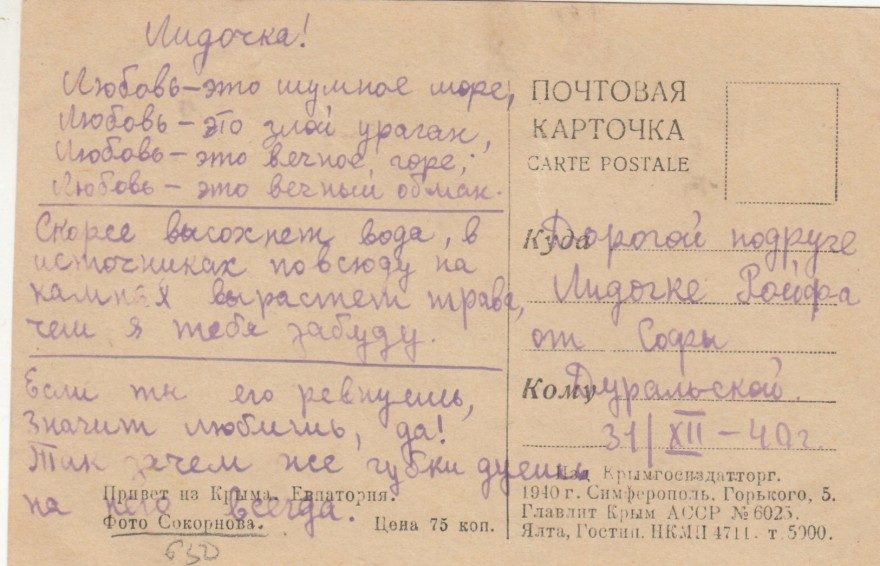 Лидочка!
Любовь – это шумное море,
Любовь – это злой ураган,
Любовь – это вечное горе,
Любовь – это вечный обман.
Скорее высохнет вода, в
источниках повсюду на
камнях вырастет трава,
чем я тебя забуду.
Если ты его ревнуешь,
Значит любишь, да!
Так зачем же губки дуешь
на него всегда.
Привет из Крыма. Евпатория.
Фото Сокорнова.
Цена 75 коп.
630
ПОЧТОВАЯ
КАРТОЧКА
CARTE POSTALE
Куда Дорогой подруге
Лидочке Ройфа
от Софы
Кому Дуральской
31/XII – 40 г.
Изд. Крымгосиздатторг.
1940 г. Симферополь. Горького, 5.
Главлит Крым АССР № 6025.
Ялта, Гостип. НКМП 4711. т. 5000.